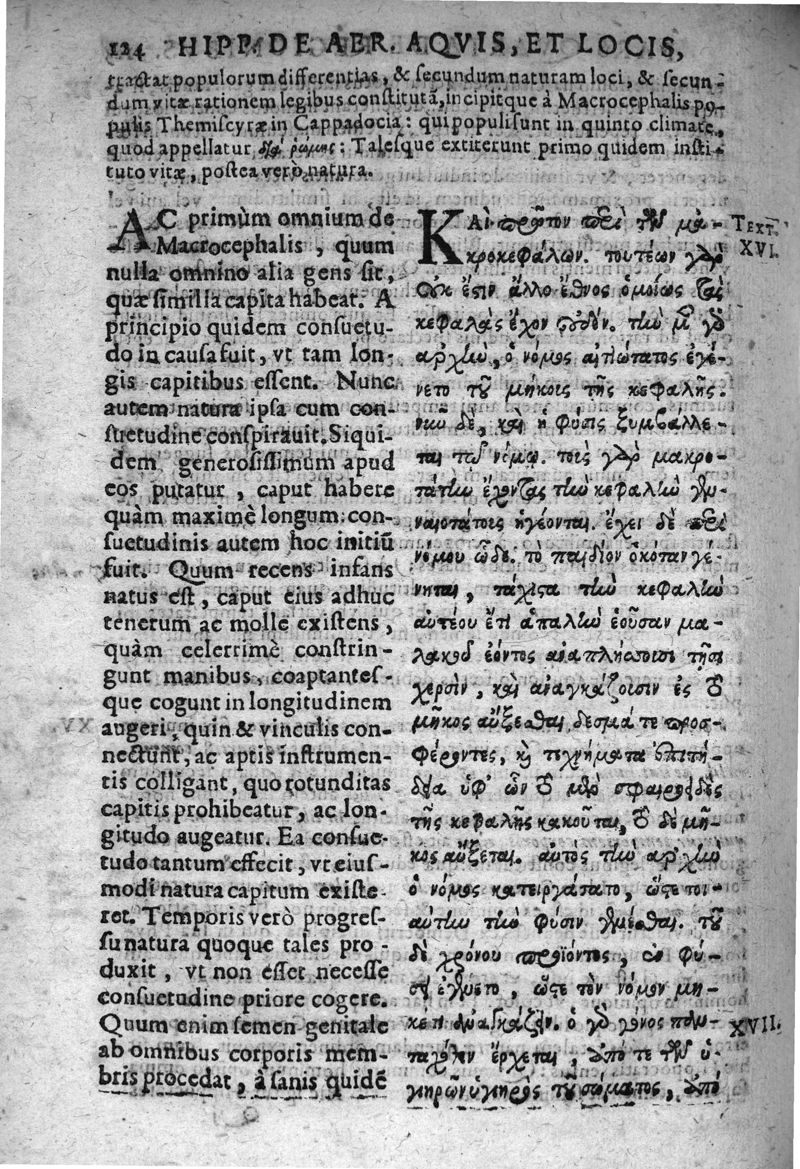 124 HIPP. DE AER. AQVIS, ET LOCIS,
tractat populorum differentias, & secundum naturam loci, & secun-
dum vitæ rationem legibus constitutã, incipitque à Macrocephalis po-
pulis Themiscyræ in Cappadocia: qui populi sunt in quinto climate,
quod appellatur διὰ ῥώμης: Talesque extiterunt primo quidem insti-
tuto vitæ, postea verò natura.
AC primùm omnium de
Macrocephalis, quum
nulla omnino alia gens sit,
quæ similia capita habeat. A
principio quidem consuetu-
do in causa fuit, vt tam lon-
gis capitibus essent. Nunc
autem natura ipsa cum con-
suetudine conspirauit. Siqui-
dem generosissimum apud
eos putatur, caput habere
quàm maximè longum: con-
suetudinis autem hoc initiũ
fuit. Quum recens infans
natus est, caput eius adhuc
tenerum ac molle existens,
quàm celerrimè constrin-
gunt manibus, coaptantes-
que cogunt in longitudinem
augeri, quin & vinculis con-
nectunt, ac aptis instrumen-
tis colligant, quo rotunditas
capitis prohibeatur, ac lon-
gitudo augeatur. Ea consue-
tudo tantum effecit, vt eius-
modi natura capitum existe-
ret. Temporis verò progres-
su natura quoque tales pro-
duxit, vt non esset necesse
consuetudine priore cogere.
Quum enim semen genitale
ab omnibus corporis mem-
bris procedat, à sanis quidẽ
ΚΑὶ πρῶτον περὶ τῶν μα-
κροκεφάλων. τουτέων γὰρ
οὐκ ἔστιν ἄλλο ἔθνος ὁμοίως τὰς
κεφαλὰς ἔχον οὐδέν. τὴν μὲν γὰρ
ἀρχὴν, ὁ νόμος αἰτιώτατος ἐγέ-
νετο τοῦ μήκοις τῆς κεφαλῆς.
νῦν δὲ, καὶ ἡ φύσις ξυμβάλλε-
ται τῷ νόμῳ. τοὺς γὰρ μακρο-
τάτην ἔχοντας τὴν κεφαλὴν γεν-
ναιοτάτοις ἡγέονται. ἔχει δὲ περὶ
νόμου ὧδε. τὸ παιδίον ὁκόταν γέ-
νηται, τάχιστα τὴν κεφαλὴν
αὐτέου ἔτι ἁπαλὴν ἐοῦσαν μα-
λακοῦ ἐόντος ἀναπλήσσουσι τῇσι
χερσὶν, καὶ ἀναγκάζοισιν ἐς τὸ
μῆκος αὔξεσθαι, δεσμά τε προσ-
φέροντες, καὶ τεχνήματα ἐπιτή-
δεια ὑφ' ὧν τὸ μὲν σφαιροειδὲς
τῆς κεφαλῆς κακοῦται, τὸ δὲ μῆ-
κος αὔξεται. αὐτὸς τὴν ἀρχὴν
ὁ νόμος κατειργάσατο, ὥστε τοι-
αύτην τὴν φύσιν γενέσθαι. τοῦ
δὲ χρόνου προϊόντος, ἐν φύ-
σει ἐγένετο, ὥστε τὸν νόμον μη-
κέτι ἀναγκάζειν. ὁ γὰρ γόνος παν-
ταχόθεν ἔρχεται, ἀπό τε τῶν ὑ-
γιηρῶν ὑγιηρὸς τοῦ σώματος, ἀπό
TEXT.
XVI.
XVII.